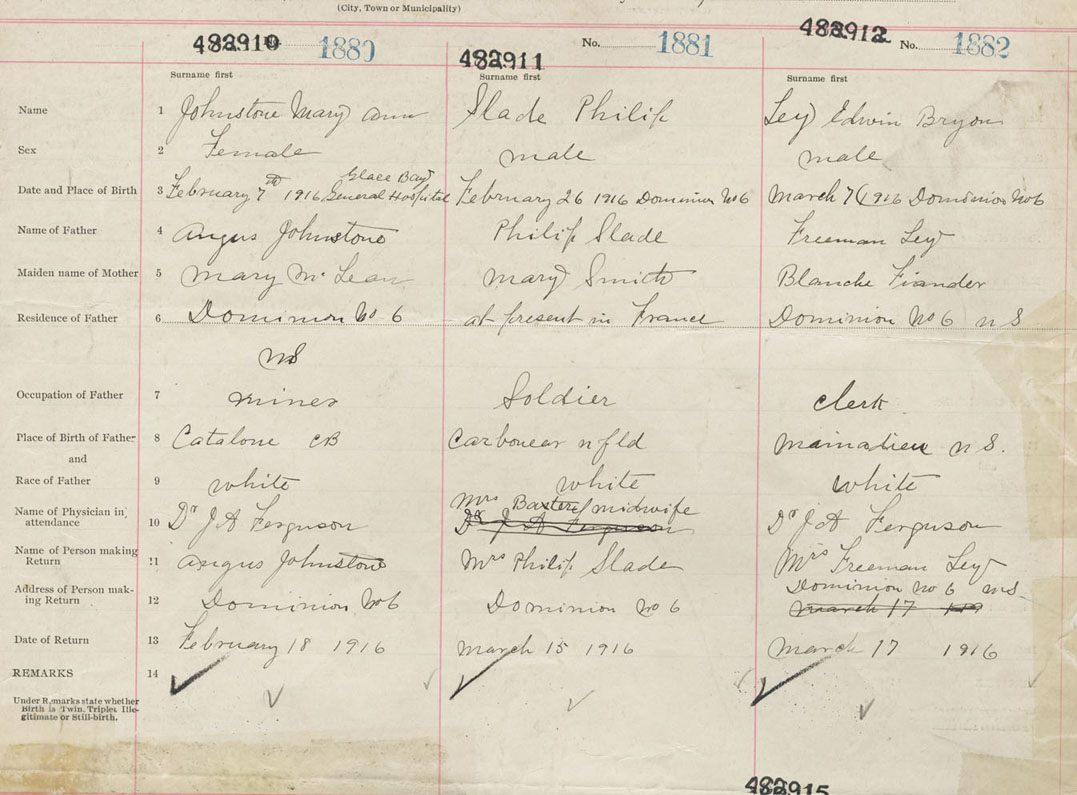 (City, Town or Municipality)
482910 No. 1880
482911 No. 1881
482912 No. 1882
Surname first Surname first Surname first
Name 1 Johnstone Mary Ann Slade Philip Ley Edwin Bryon
Sex 2 Female male male
Glace Bay
Date and Place of Birth 3 February 7th 1916 General Hospital February 26 1916 Dominion No 6 March 7 1916 Dominion No 6
Name of Father 4 Angus Johnstone Philip Slade Freeman Ley
Maiden name of Mother 5 Mary Mc Lean Mary Smith Blanche Fiander
Residence of Father 6 Dominion No 6 at present in France Dominion No 6 n S
n S
Occupation of Father 7 miner Soldier clerk
Place of Birth of Father 8 Catalone CB Carbonear nfld mainadieu n S.
and
Race of Father 9 white white white
Mrs Baxter midwife
Name of Physician in
attendance 10 Dr J A Ferguson Dr J A Ferguson Dr J A Ferguson
Name of Person making
Return 11 Angus Johnstone Mrs Philip Slade Mrs Freeman Ley
Address of Person mak-
ing Return 12 Dominion No 6 Dominion no 6 Dominion no 6 n S
March 17
Date of Return 13 February 18 1916 March 15 1916 March 17 1916
REMARKS 14
Under Remarks state whether
Birth is Twin. Triplet Ille-
gitimate or Still-birth.
482915